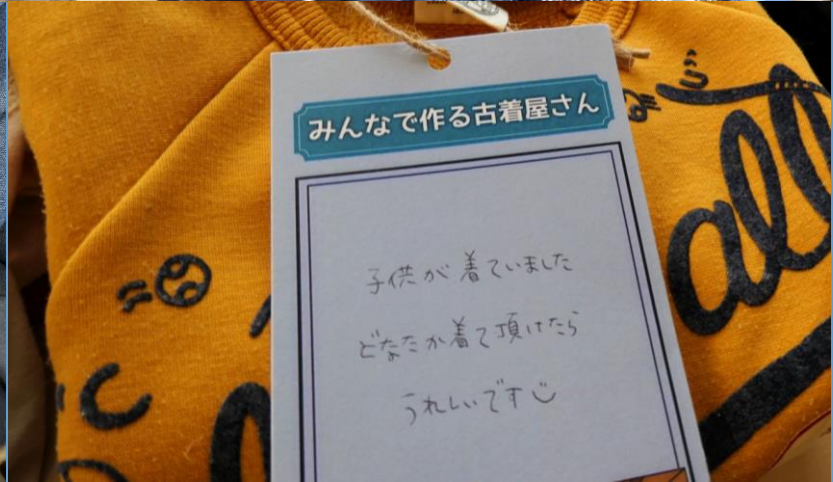 みんなで作る古着屋さん
子供が着ていました
どなたか着て頂けたら
うれしいです
all